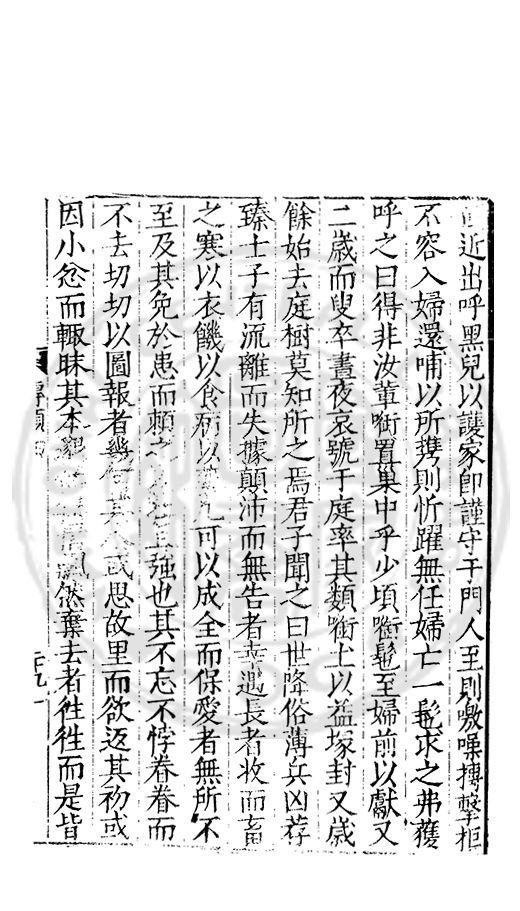 近出呼黑兒以護家即謹守于門人至則噭噪搏擊拒
不容入婦還哺以所携則忻躍無任婦亡一髢求之弗獲
呼之曰得非汝輩銜置巢中乎少頃銜髢至婦前以獻又
二歲而叟卒晝夜哀號于庭率其類銜土以益塚封又歲
餘始去庭樹莫知所之焉君子聞之曰世降俗薄兵凶荐
臻士子有流離而失據顛沛而無告者幸遇長者收而畜
之寒以衣饑以食病以凡可以成全而保愛者無所不
至及其免於患而頼之且強也其不忘不悖眷眷而
不去切切以圖報者幾何或思故里而欲返其初或
因小忿而輙昧其本飄然棄去者徃徃而是皆